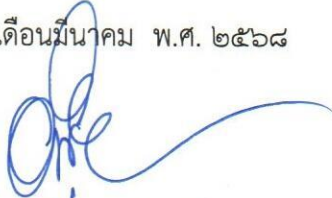 เดือนมีนาคม พ.ศ. ๒๕๖๘